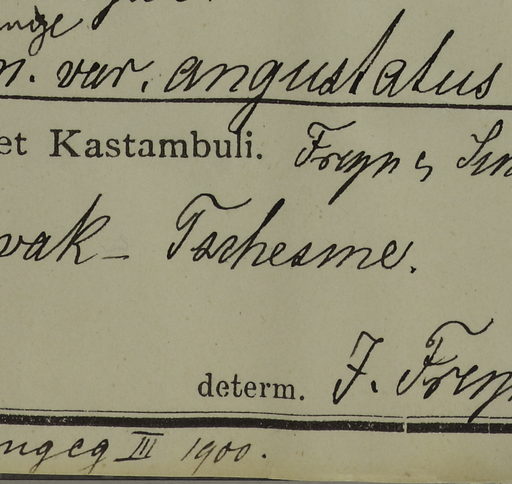 n. var. angustatus
et Kastambuli. Freyn &
vak - Tschesme.
determ. J. Freyn
III 1900.